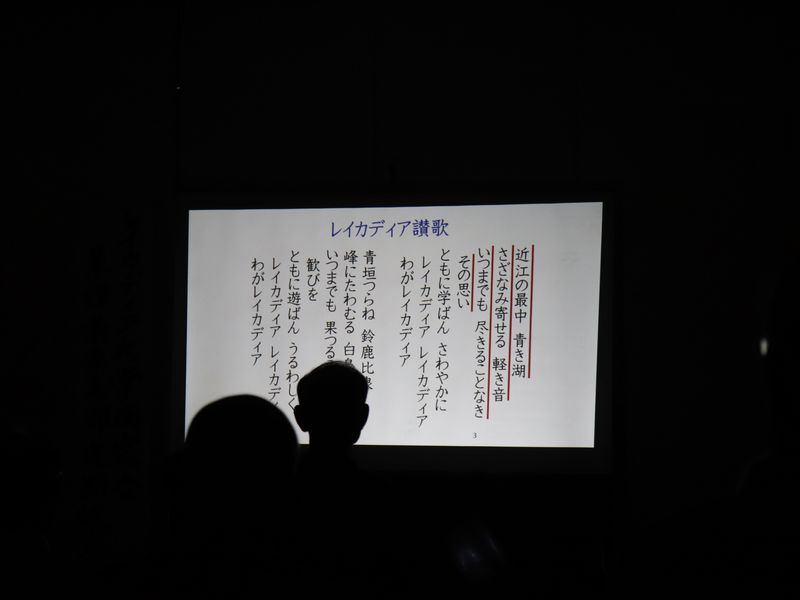 レイカディア讃歌
近江の最中 青き湖
さざなみ寄せる 軽き音
いつまでも 尽きることなき
その思い
ともに学ばん さわやかに
レイカディア レイカディア
わがレイカディア
青垣つらね 鈴鹿比良
峰にたわむる 白鳥
いつまでも 果つる
歓びを
ともに遊ばん うるわしく
レイカディア レイカディ
わがレイカディア
3